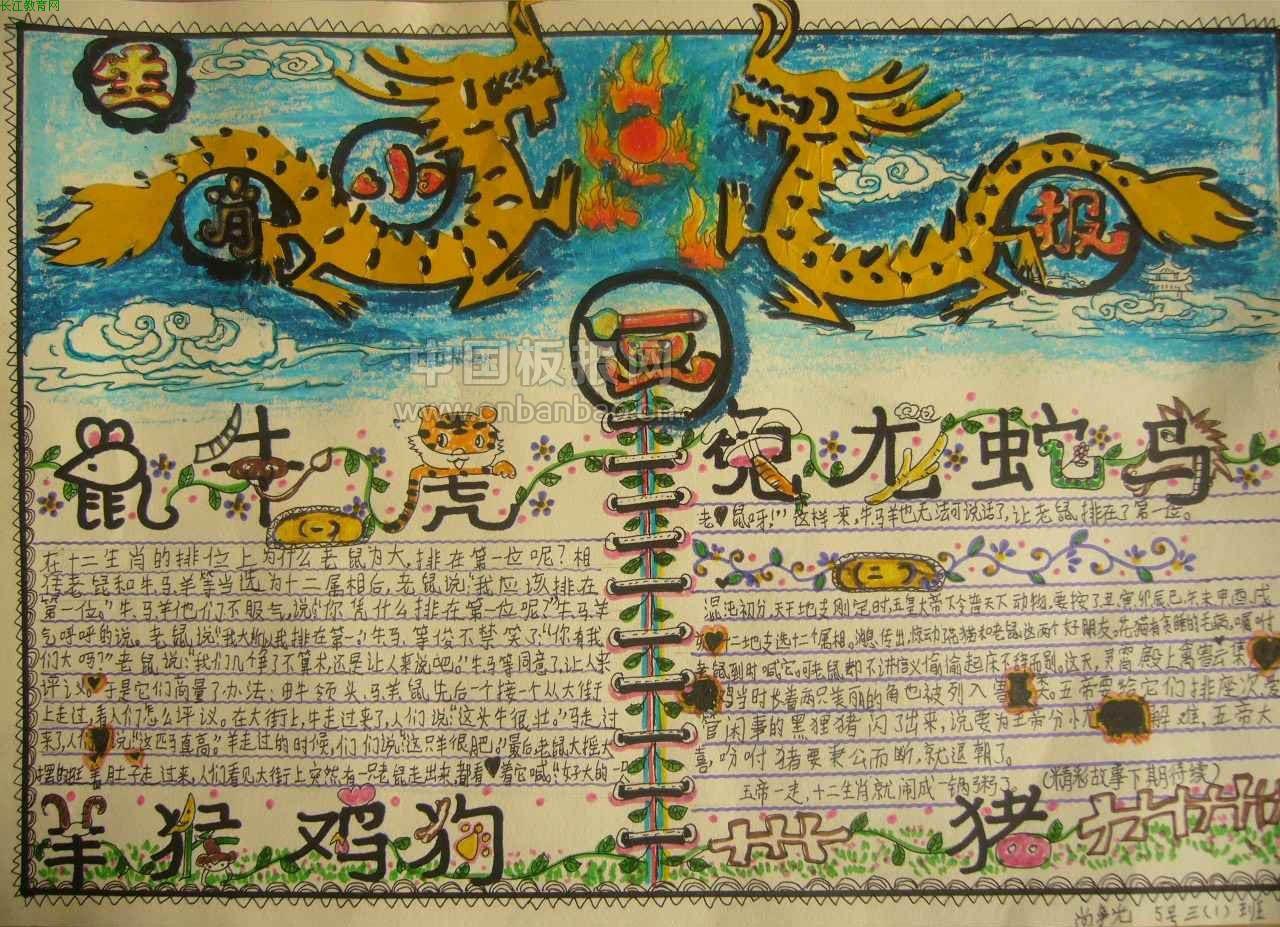 长江教育网
生
肖
小
报
中国板报网
www.cnbanbao.cn
鼠 牛 虎
兔 龙 蛇 马
在十二生肖的排位上为什么老鼠为大,排在第一位呢?相
老鼠和牛马羊等当选为十二属相后,老鼠说:"我应该排在
第一位。"牛马羊他们不服气,说:"你凭什么排在第一位呢?"牛马羊
气呼呼的说。老鼠说"我大所以我排在第一"牛马等俊不禁笑了:"你有我
们大吗?"老鼠说:"我们几个争了不算术,还是让人来说吧。"牛马等同意了,让人来
评议。于是它们商量了办法:由牛领头,马羊鼠先后一个接一个从大街
上走过,看人们怎么评议。在大街上,牛走过来了,人们说"这头牛很壮。"马走过
来了,人们说"这匹马真高。"羊走过的时候,们们说"这只羊很肥。"最后,老鼠大摇大
摆的挺着肚子走过来,人们看见大街上突然有一只老鼠走出来,都看着它喊:"好大的一
老鼠呀!"这样一来,牛马羊也无法可说话了,让老鼠排在了第一位。
混沌初分,天干地支刚定时,玉皇大帝下令普天下动物,要按子丑、寅、卯、辰、巳、午、未、申、酉、戌
十二地支选十二个属相。消息传出,惊动了猫和老鼠这两个好朋友。
老鼠到时喊它,可老鼠却不讲信义,偷偷起床不辞而别。这天,灵霄殿上禽害云集
鸡当时长着两只美丽的角也被列入 类。玉帝要给它们排座次,
管闲事的黑狸猪闪了出来,说要为玉帝分忧解难,玉帝大
喜,吩咐猪要秉公而断,就退朝了。
玉帝一走,十二生肖就闹成一锅粥了。
(精彩故事下期待续)
羊 猴 鸡 狗
猪
5号 三(1)班